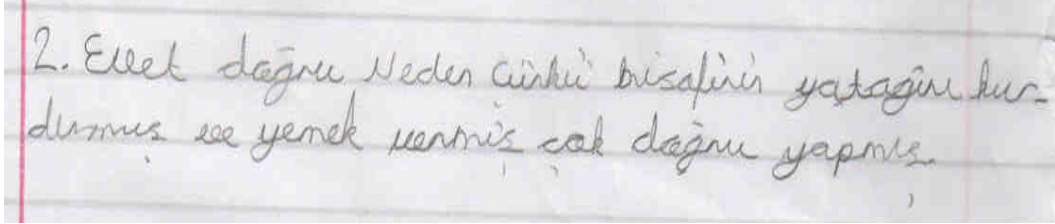 2. Evet doğru Neden Çünkü bisafirin yatağını kur-
durmuş ve yemek vermiş çok doğru yapmış.